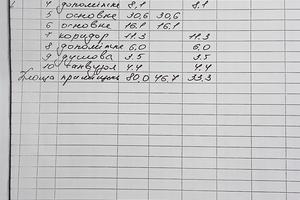 4 допоміжне 8,1 8,1
5 основне 30,6 30,6
6 основне 16,1 16,1
7 коридор 11,3 11,3
8 допоміжне 6,0 6,0
9 душова 3,5 3,5
10 санвузол 4,4 4,4
Площа приміщень 80,0 46,7 33,3